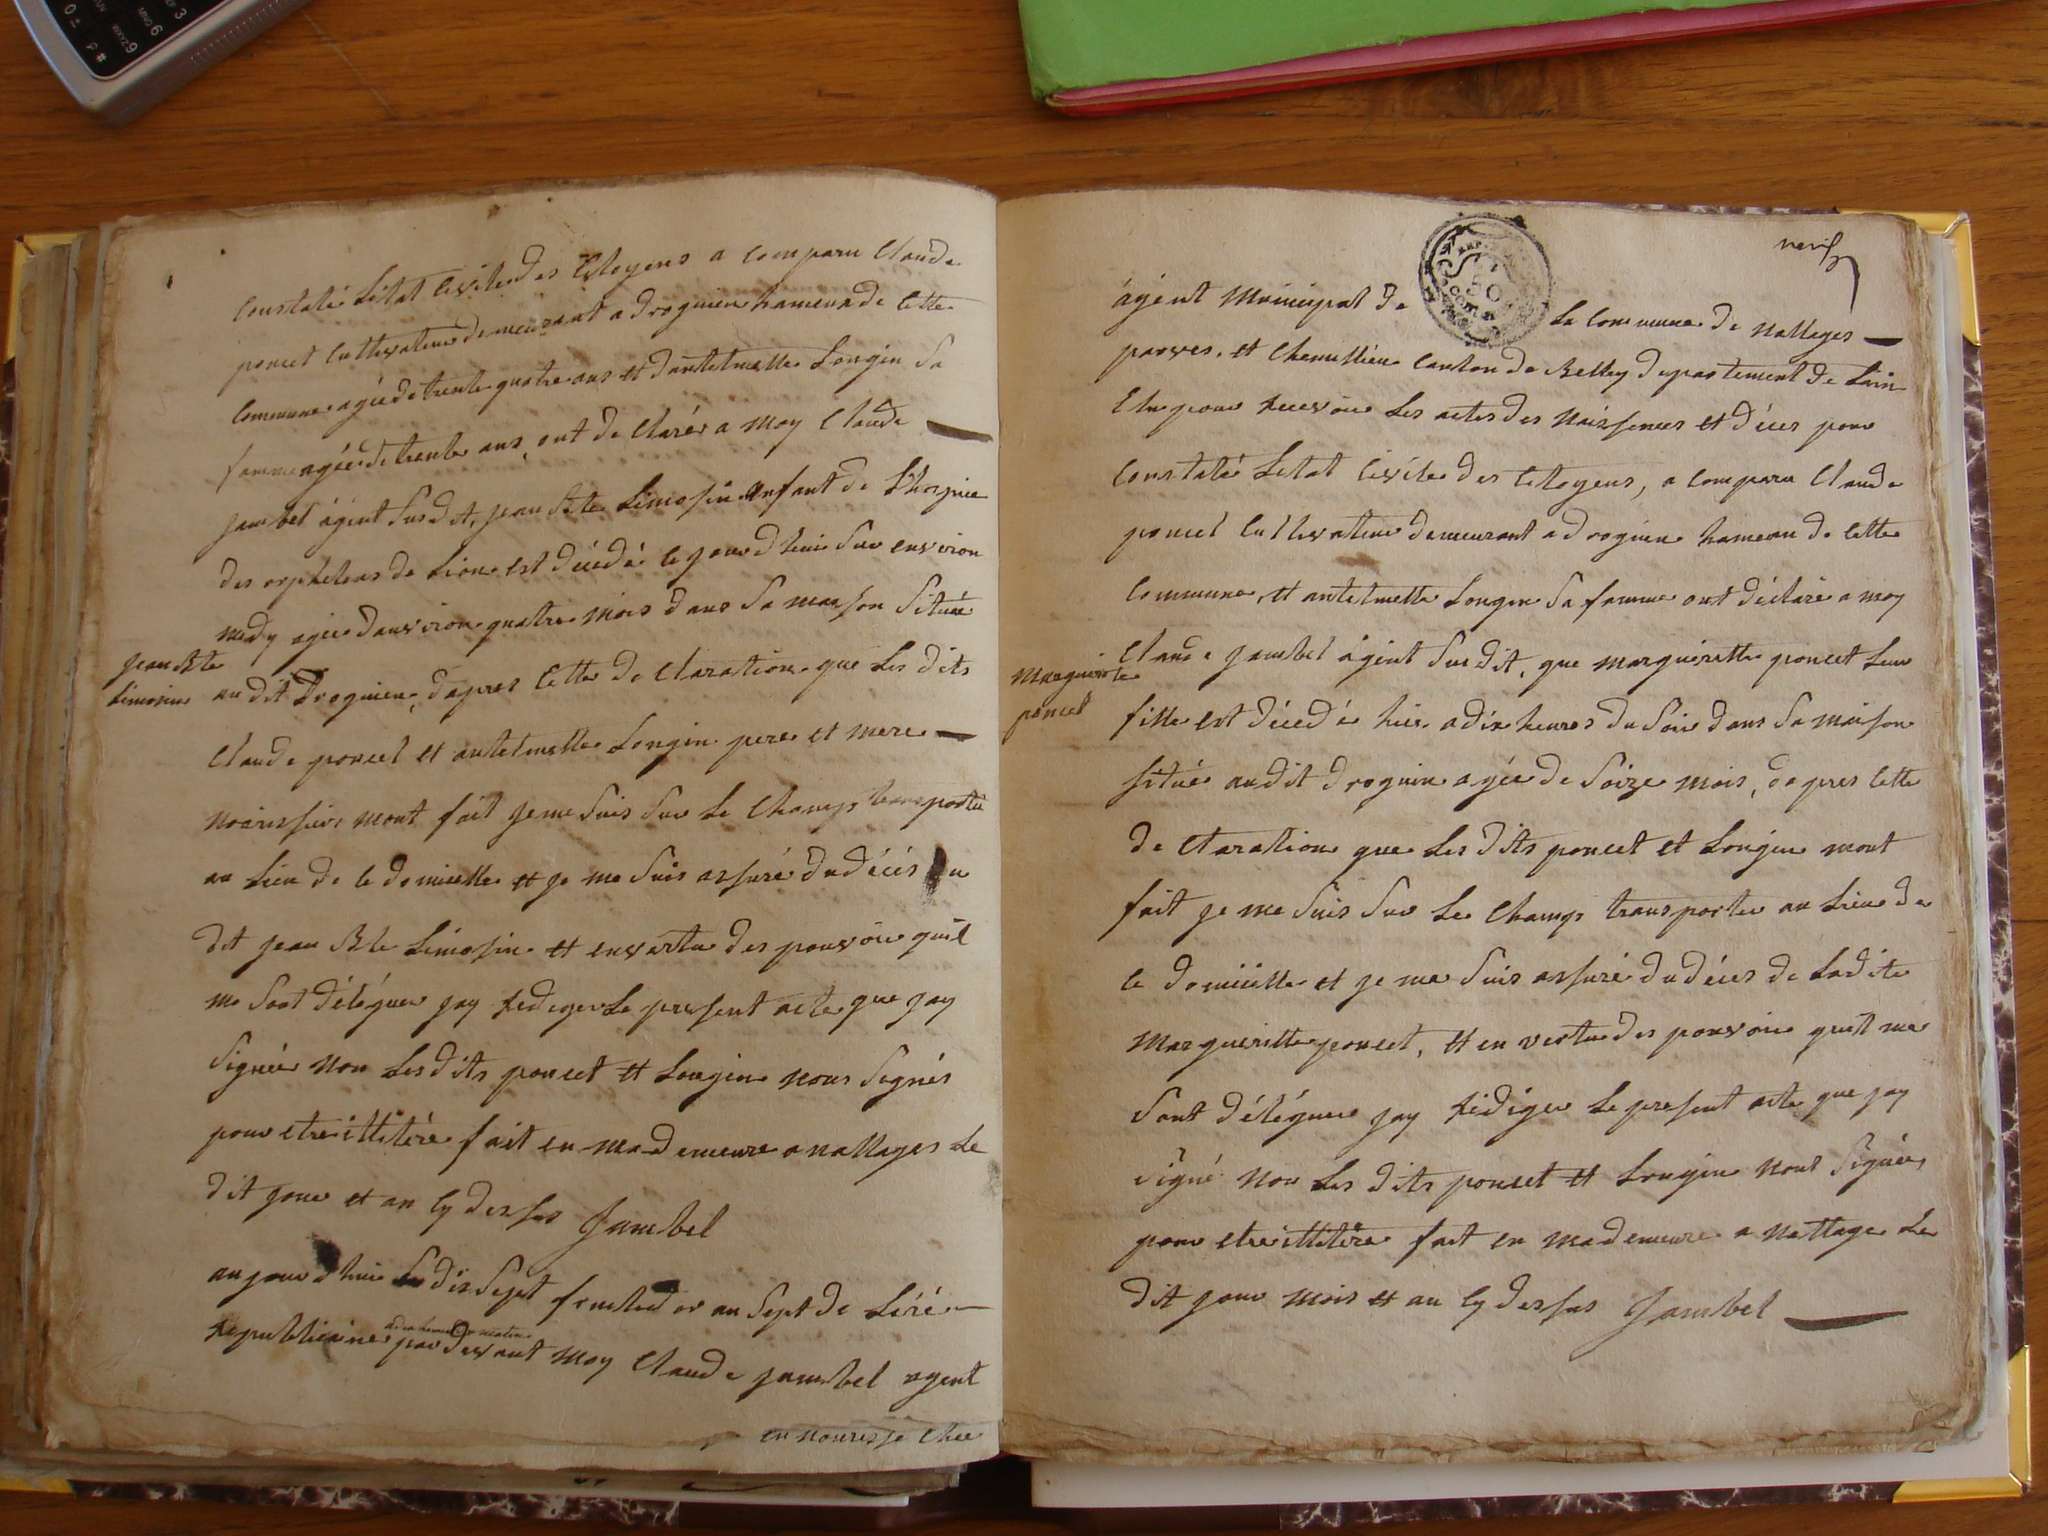 Constaté Létat Civile des Citoyens a comparu Claude
poncet Cultivateur demeurant a drognien hameau de Cette
Commune agée de trente quatre ans et dantelmette Longin Sa
famme agée de trente ans, ont de Clarér a moy Claude
Jambel ágent Susdit, jean Bte Limosin enfant de L'hospice
des orphelens de Lion est décédé le jourdhui Sur environ
medy agée danviron quatre mois dans Sa maison Située
Jean Bte
Limosin
au dit Drognien, dapres Cette de Claration que Les dits
Claude poncet et antelmette Longin pere et mere
nourissiers mont fait je me Suis Sur Le Champs transportée
au Lieu de le domicelle et je me Suis assuré du décés du
dit jean Bte Limosin et en vertu des pouvoir quil
me Sont déléguer jay rediger Le present acte que jay
Signée non Les dits poncet et Longin nous Signés
pour etre illitére fait en ma demeure a nattages Le
dit jour et an Cy dessus Jambel
aujourdhui Le dix Sept fructidor an Sept de Léré
republicaine par devant moy Claude jambel agent
en nourisse Chee
verif
ágent Municipal de La Commune de nattages
parves, et Chemillieu Canton de Belley departement de Lain
Elu pour recevoir Les actes des Naissences et décés pour
Constaté Letat Civile des Citoyens, a comparu Claude
poncet Cultivateur demeurant a drognien hameau de Cette
Commune, et antelmette Longin Sa famme ont déclaré a moy
Claude jambel ágent Susdit, que margueritte poncet Leur
Marguerite
poncet
fille est décedée hier a dix heures du Soir dans Sa maison
Située audit drognien agée de Seize mois, dapres Cette
de Claration que Les dits poncet et Longin mont
fait je me Suis Sur Le Champs transporter au Lieu de
le domicelle et je me Suis assuré du déces de Ladite
Margueritte poncet, et en vertu des pouvoir quil me
Sont déléguer jay rédiger Le present acte que jay
Signé non Les dits poncet et Longin nont Signée,
pour etre illitére fait en ma demeure a Nattage Le
dit jour mois et an Cy dessus Jambel